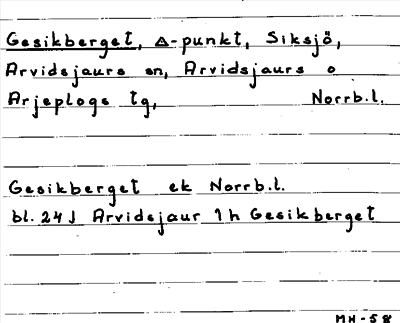 Gesikberget, Δ-punkt, Siksjö,
Arvidsjaurs sn, Arvidsjaurs o
Arjeplogs tg, Norrb.l.
Gesikberget ek Norrb.l.
bl. 24J Arvidsjaur 1h Gesikberget
MH-58